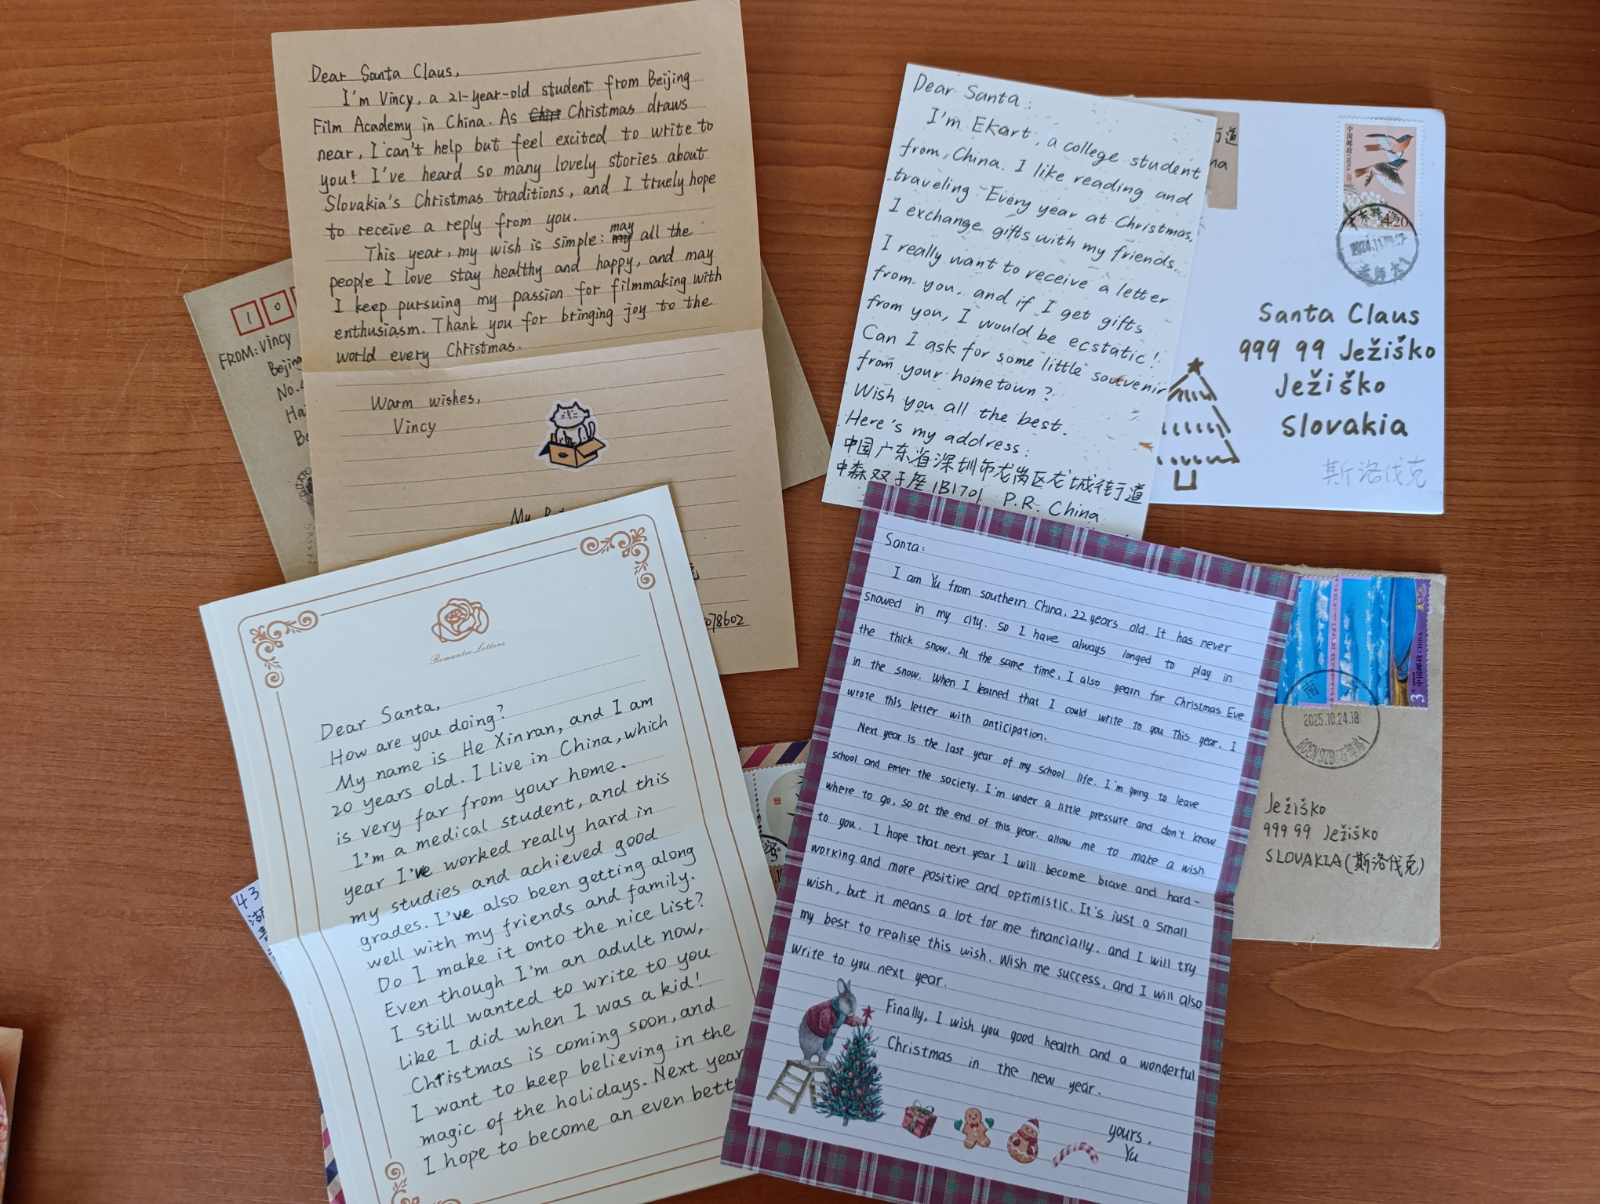 Dear Santa Claus,
I'm Vincy, a 21-year-old student from Beijing
Film Academy in China. As Christmas draws
near, I can't help but feel excited to write to
you! I've heard so many lovely stories about
Slovakia's Christmas traditions, and I truely hope
to receive a reply from you.
This year, my wish is simple: may all the
people I love stay healthy and happy, and may
I keep pursuing my passion for filmmaking with
enthusiasm. Thank you for bringing joy to the
world every Christmas.
Warm wishes,
Vincy
My
078602
1 0
FROM: Vincy
Beijing
No.
Ha
Be
Dear Santa:
I'm Ekart, a college student
from, China. I like reading and
traveling. Every year at Christmas,
I exchange gifts with my friends.
I really want to receive a letter
from you, and if I get gifts
from you, I would be ecstatic!
Can I ask for some little souvenir
from your hometown?
Wish you all the best.
Here's my address:
中国广东省深圳市龙岗区龙城街道
中森双子座1B1701 P.R. China
街道
na
中国邮政
4.20
Santa Claus
999 99 Ježiško
Ježiško
Slovakia
斯洛伐克
Romantic Letters
Dear Santa,
How are you doing?
My name is He Xinran, and I am
20 years old. I live in China, which
is very far from your home.
I'm a medical student, and this
year I've worked really hard in
my studies and achieved good
grades. I've also been getting along
well with my friends and family.
Do I make it onto the nice list?
Even though I'm an adult now,
I still wanted to write to you
like I did when I was a kid!
Christmas is coming soon, and
I want to keep believing in the
magic of the holidays. Next year
I hope to become an even bett
43
湖
Santa:
I am Yu from southern China, 22 years old. It has never
snowed in my city. so I have always longed to play in
the thick snow. At the same time, I also yearn for Christmas Eve
in the snow. When I learned that I could write to you this year, I
wrote this letter with anticipation.
Next year is the last year of my school life. I'm going to leave
school and enter the society. I'm under a little pressure and don't know
where to go, so at the end of this year, allow me to make a wish
to you. I hope that next year I will become brave and hard-
working and more positive and optimistic. It's just a small
wish, but it means a lot for me financially. and I will try
my best to realise this wish. Wish me success, and I will also
write to you next year.
Finally, I wish you good health and a wonderful
Christmas in the new year.
yours,
Yu
中国邮政 CHINA
3
2025.10.24.18
Ježiško
999 99 Ježiško
SLOVAKIA(斯洛伐克)